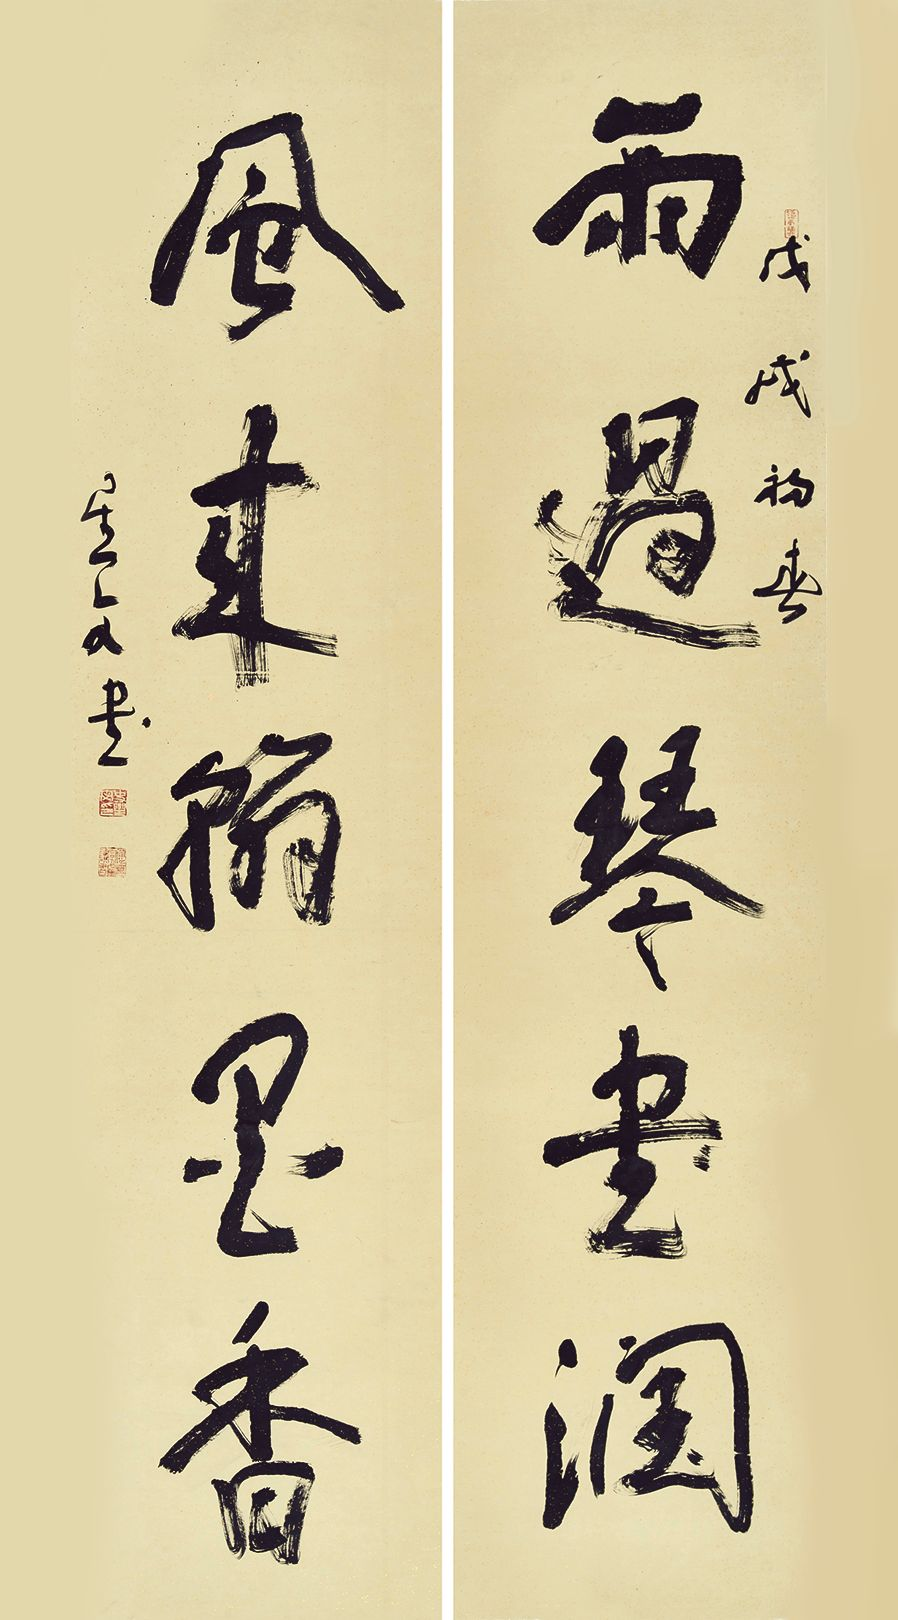 戊戌初春
雨過琴書潤
風來翰墨香
書